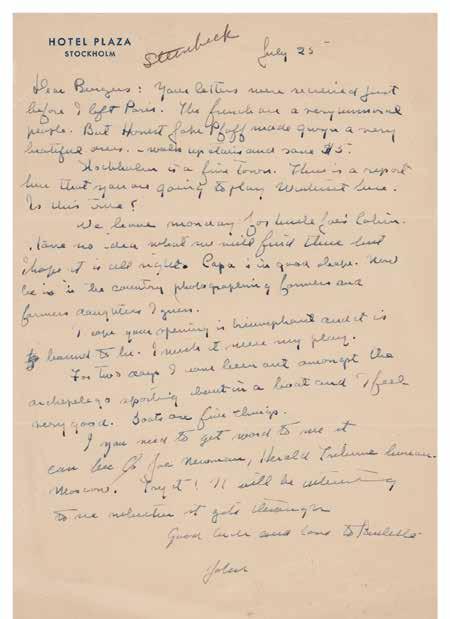 HOTEL PLAZA
STOCKHOLM
Steinbeck
July 25
Dear Burgess: Your letters were received just
before I left Paris. The french are a very immoral
people. But Honest Jake made a very
beautiful – walk up stairs and save $5.
Stockholm is a fine town. There is a report
here that you are going to play here.
Is this true?
We leave monday for Uncle Joe's Cabin.
Have no idea what we will find there but
I hope it is all right. Capa is in good shape. Now
he is in the country photographing farmers and
farmers daughters I guess.
I hope your opening is triumphant and it is
bound to be. I wish it were my play.
For two days I have been out amongst the
archepelago sporting about in a boat and I feel
very good. Boats are fine things.
If you need to get word to me it
can be c/o Joe Newman, Herald Tribune bureau.
Moscow. Try it! It will be interesting
to see whether it gets through
Good luck and love to
John